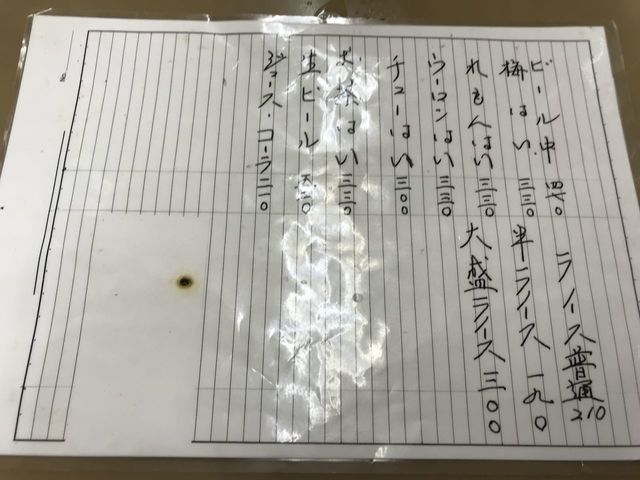 ビール中
梅はい 三三〇
れもんはい 三三〇
ウーロンはい 三三〇
チューはい 三〇〇
お茶はい 三三〇
生ビール
ジュース・コーラ
ライス普通 210
半ライス 一九〇
大盛ライス 三〇〇
No.